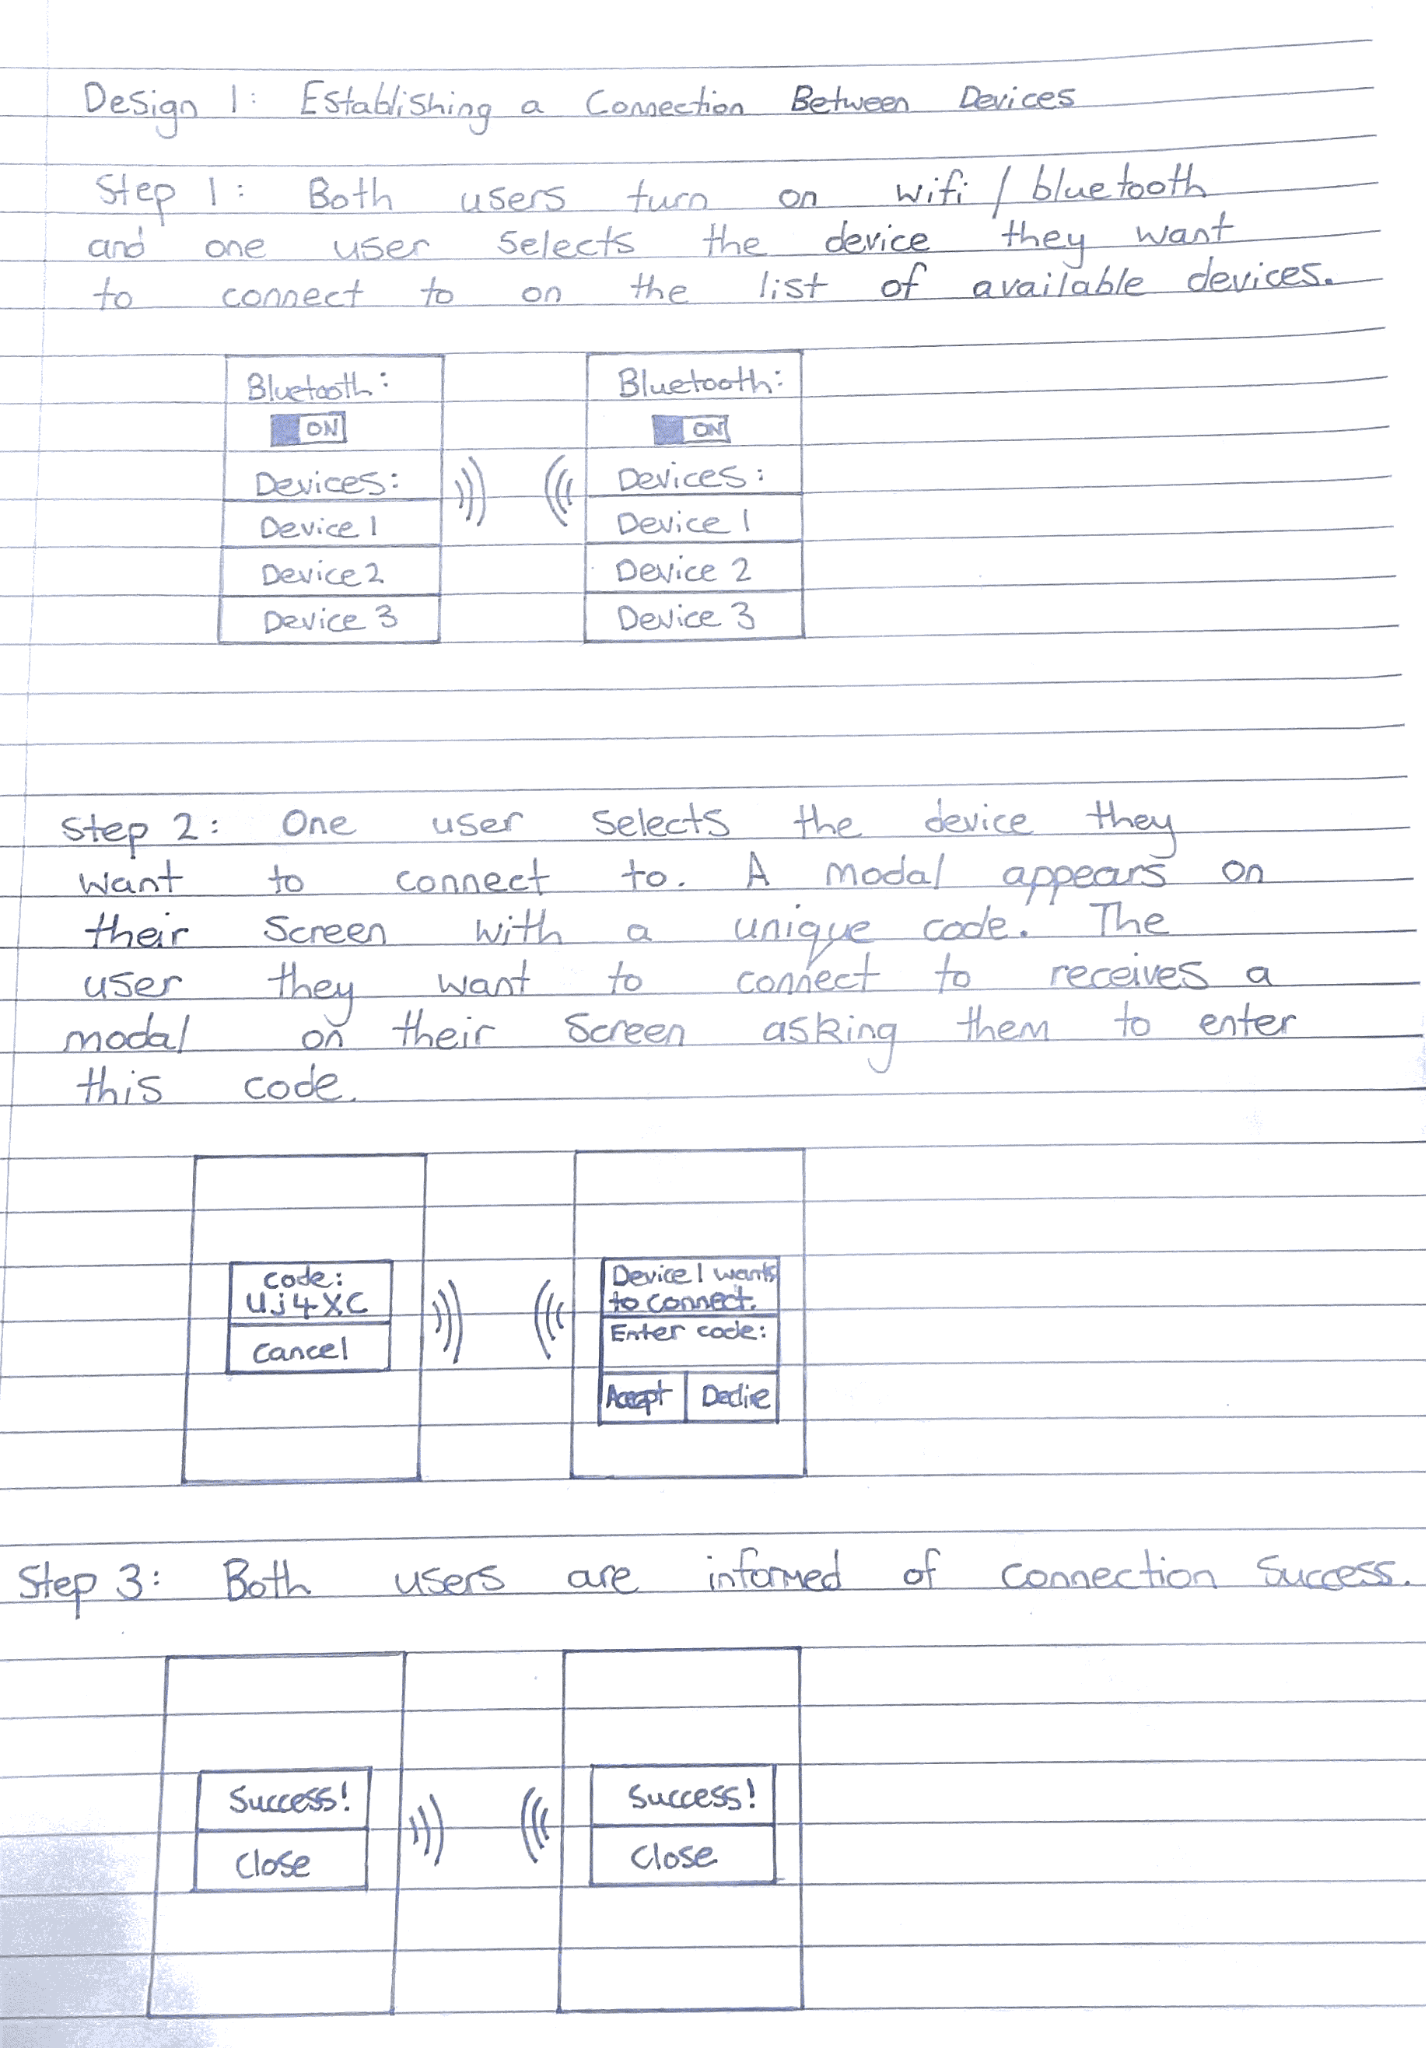 Design 1: Establishing a Connection Between Devices
Step 1: Both users turn on wifi / bluetooth
and one user selects the device they want
to connect to on the list of available devices.
Bluetooth:
ON
Devices:
Device 1
Device 2
Device 3
Bluetooth:
ON
Devices:
Device 1
Device 2
Device 3
Step 2: One user selects the device they
want to connect to. A modal appears on
their screen with a unique code. The
user they want to connect to receives a
modal on their screen asking them to enter
this code.
code:
Uj4XC
Cancel
Device 1 wants
to connect.
Enter code:
Accept
Declie
Step 3: Both users are informed of connection Success.
Success!
Close
Success!
Close